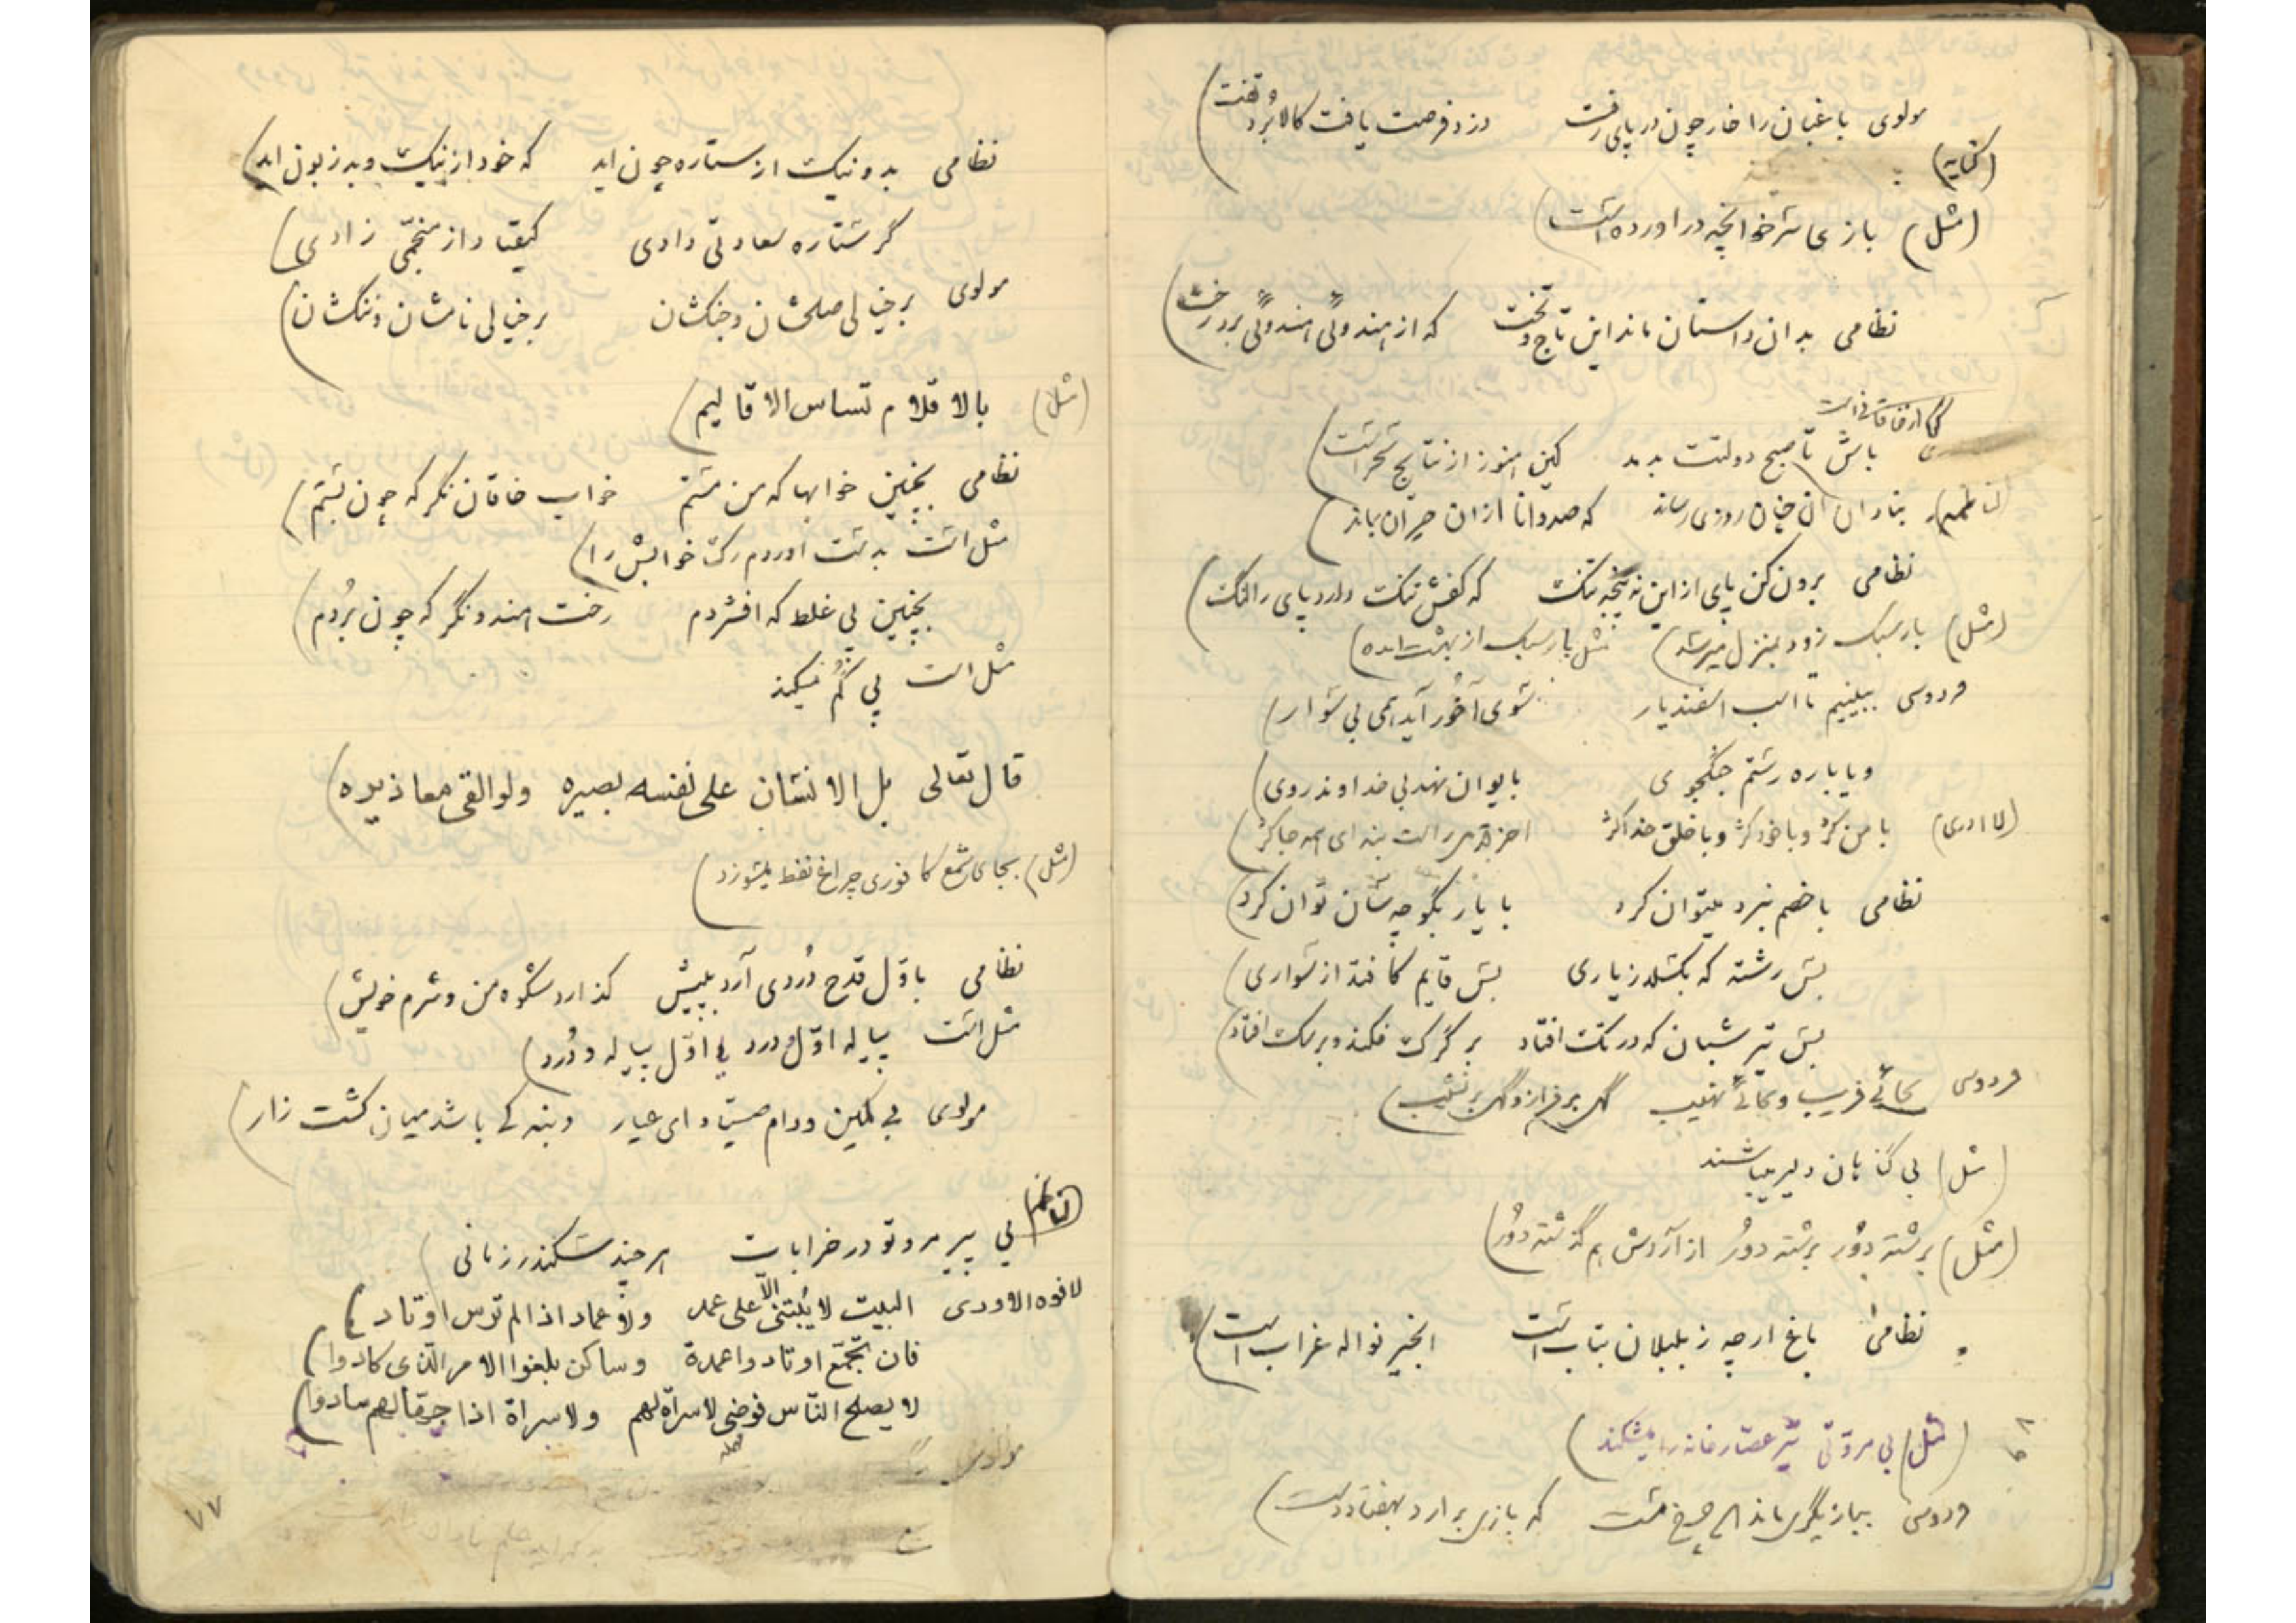 مولوی باغبان را خار چون در پای رفت دزد فرصت یافت کالا برد و تفت
(کنایه)
(مثل) بازی سر خوانچه در اورده است
نظامی بدان داستان ماند این تاج و تخت که از هندوئی هندوئی برد رخت
باش تا صبح دولتت بدمد کین هنوز از نتایج سحر است
بنادان ان چنان روزی رساند که صد دانا ازان حیران بماند
نظامی برون کن پای از این پاچه تنگ که کفش تنگ دارد پای را لنگ
(مثل) بار سبک زود بمنزل میرسد) مثل بار سبک از بهشت امده)
فردوسی ببینیم تا اسب اسفندیار سوی آخور آید همی بی سوار
و یا باره رستم جنگجوی بایوان نهد بی خداوند روی
(لا ادری) با من کژ و با خود کژ و با خلق خدا کژ اخر قدمی راست بنه ای همه جا کژ
نظامی با خصم نبرد میتوان کرد با یار بگو چه سان توان کرد
بس رشته که بگسلد ز یاری بس قایم کافتد از سواری
بس تیر شبان که در تک افتاد بر گرگ فکند و بر سگ افتاد
فردوسی کمانی فریب و کمانی نهیب گهی بر فراز و گهی بر نشیب
(مثل) بی گناهان دلیر میباشند
(مثل) برشته دور برشته دور از آردش هم گذشته دور
نظامی باغ ارچه ز بلبلان بتاب است انجیر نواله غراب است
(مثل) بی مروتی تیر عصار خانه را میشکند
فردوسی ببازیگری ماند این چرخ مست که بازی برارد بهفتاد دست
نظامی بد و نیک از ستاره چون اید که خود از نیک و بد زبون اید
گر ستاره سعادتی دادی کیقباد از منجمی زادی
مولوی بر خیالی صلحشان و جنگشان بر خیالی نامشان و ننگشان
(مثل) بالاقلام تساس الاقالیم
نظامی بچنین خوابها که من مستم خواب خاقان نگر که چون بستم
مثل است بدست اوردم رگ خوابش را
بچنین پی غلط که افشردم رخت هندو نگر که چون بردم
مثل است پی گم میکند
قال تعالی بل الانسان علی نفسه بصیره ولو القی معاذیره
(مثل) بجای شمع کافوری چراغ نفط میسوزد
نظامی باول قدح دردی آرد بپیش گذارد شکوه من و شرم خویش
مثل است پیاله اول و درد فی اول پیاله و درد
مولوی بی کمین و دام صیاد ای عیار دنبه کی باشد میان کشت زار
بی پیر مرو تو در خرابات هر چند سکندر زمانی
لافوه الاودی البیت لا یبتنی الّا علی عمد ولا عماد اذا لم ترس اوتاد
فان تجمّع اوتاد واعمدة وساکن بلغوا الامر الّذی کادوا
لا یصلح النّاس فوضی لا سراة لهم ولا سراة اذا جهالهم سادوا
مولوی
۷۷